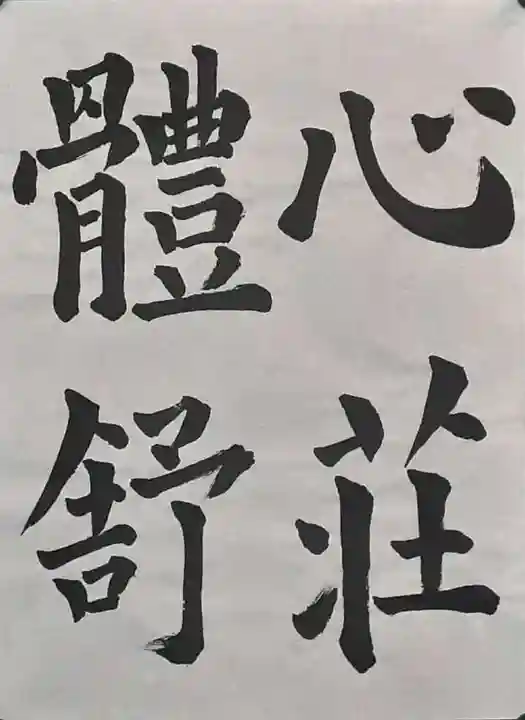 心莊
體舒